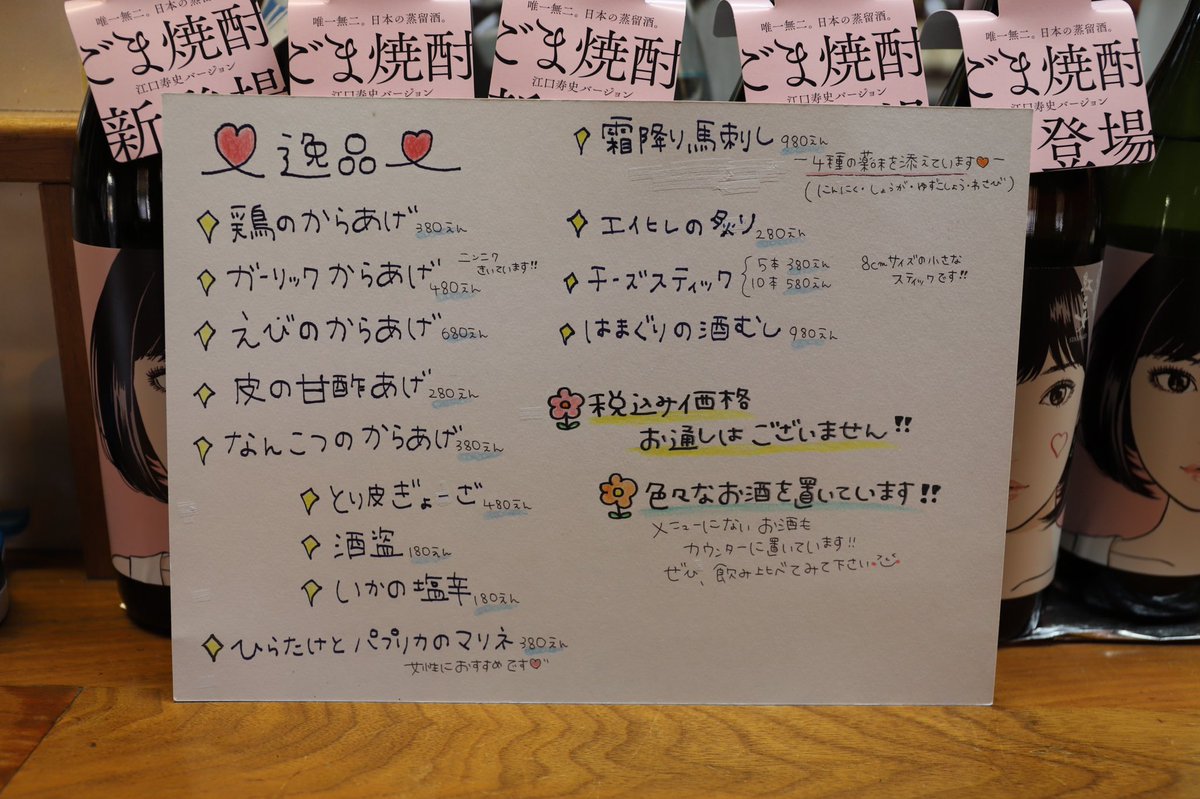 唯一無二。日本の蒸留酒。
ごま焼酎
江口寿史バージョン
新登場
唯一無二。日本の蒸留酒。
ごま焼酎
江口寿史バージョン
唯一無二。日本の蒸留酒。
ごま焼酎
江口寿史バージョン
唯一無二。日本の蒸留酒。
ごま焼酎
江口寿史バージョン
唯一無二。日本の蒸留酒。
ごま焼酎
江口寿史バージョン
登場
逸品
鶏のからあげ 380えん
ガーリックからあげ 480えん ニンニクきいています!!
えびのからあげ 680えん
皮の甘酢あげ 280えん
なんこつのからあげ 380えん
とり皮ぎょーざ 480えん
酒盗 180えん
いかの塩辛 180えん
ひらたけとパプリカのマリネ 380えん
女性におすすめです
霜降り馬刺し 980えん
4種の薬味を添えています
(にんにく・しょうが・ゆずこしょう・わさび)
エイヒレの炙り 280えん
チーズスティック 5本 380えん
10本 580えん
8cmサイズの小さな
スティックです!!
はまぐりの酒むし 980えん
税込み価格
お通しはございません!!
色々なお酒を置いています!!
メニューにないお酒も
カウンターに置いています!!
ぜひ、飲み比べてみて下さい